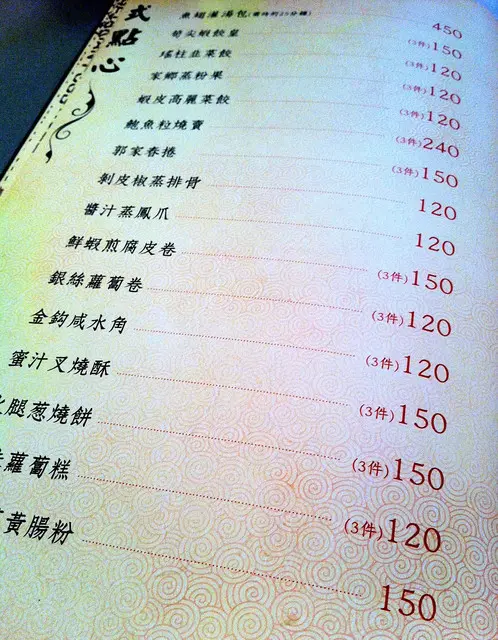 式點心
魚翅灌湯包(需待約25分鐘) 450
筍尖蝦餃皇 (3件)150
瑤柱韭菜餃 (3件)120
家鄉蒸粉果 (3件)120
蝦皮高麗菜餃 (3件)120
鮑魚粒燒賣 (3件)240
郭家春捲 (3件)150
剝皮椒蒸排骨 120
醬汁蒸鳳爪 120
鮮蝦煎腐皮卷 (3件)150
銀絲蘿蔔卷 (3件)120
金鉤咸水角 (3件)120
蜜汁叉燒酥 (3件)150
腿葱燒餅 (3件)150
蘿蔔糕 (3件)120
黃腸粉 150